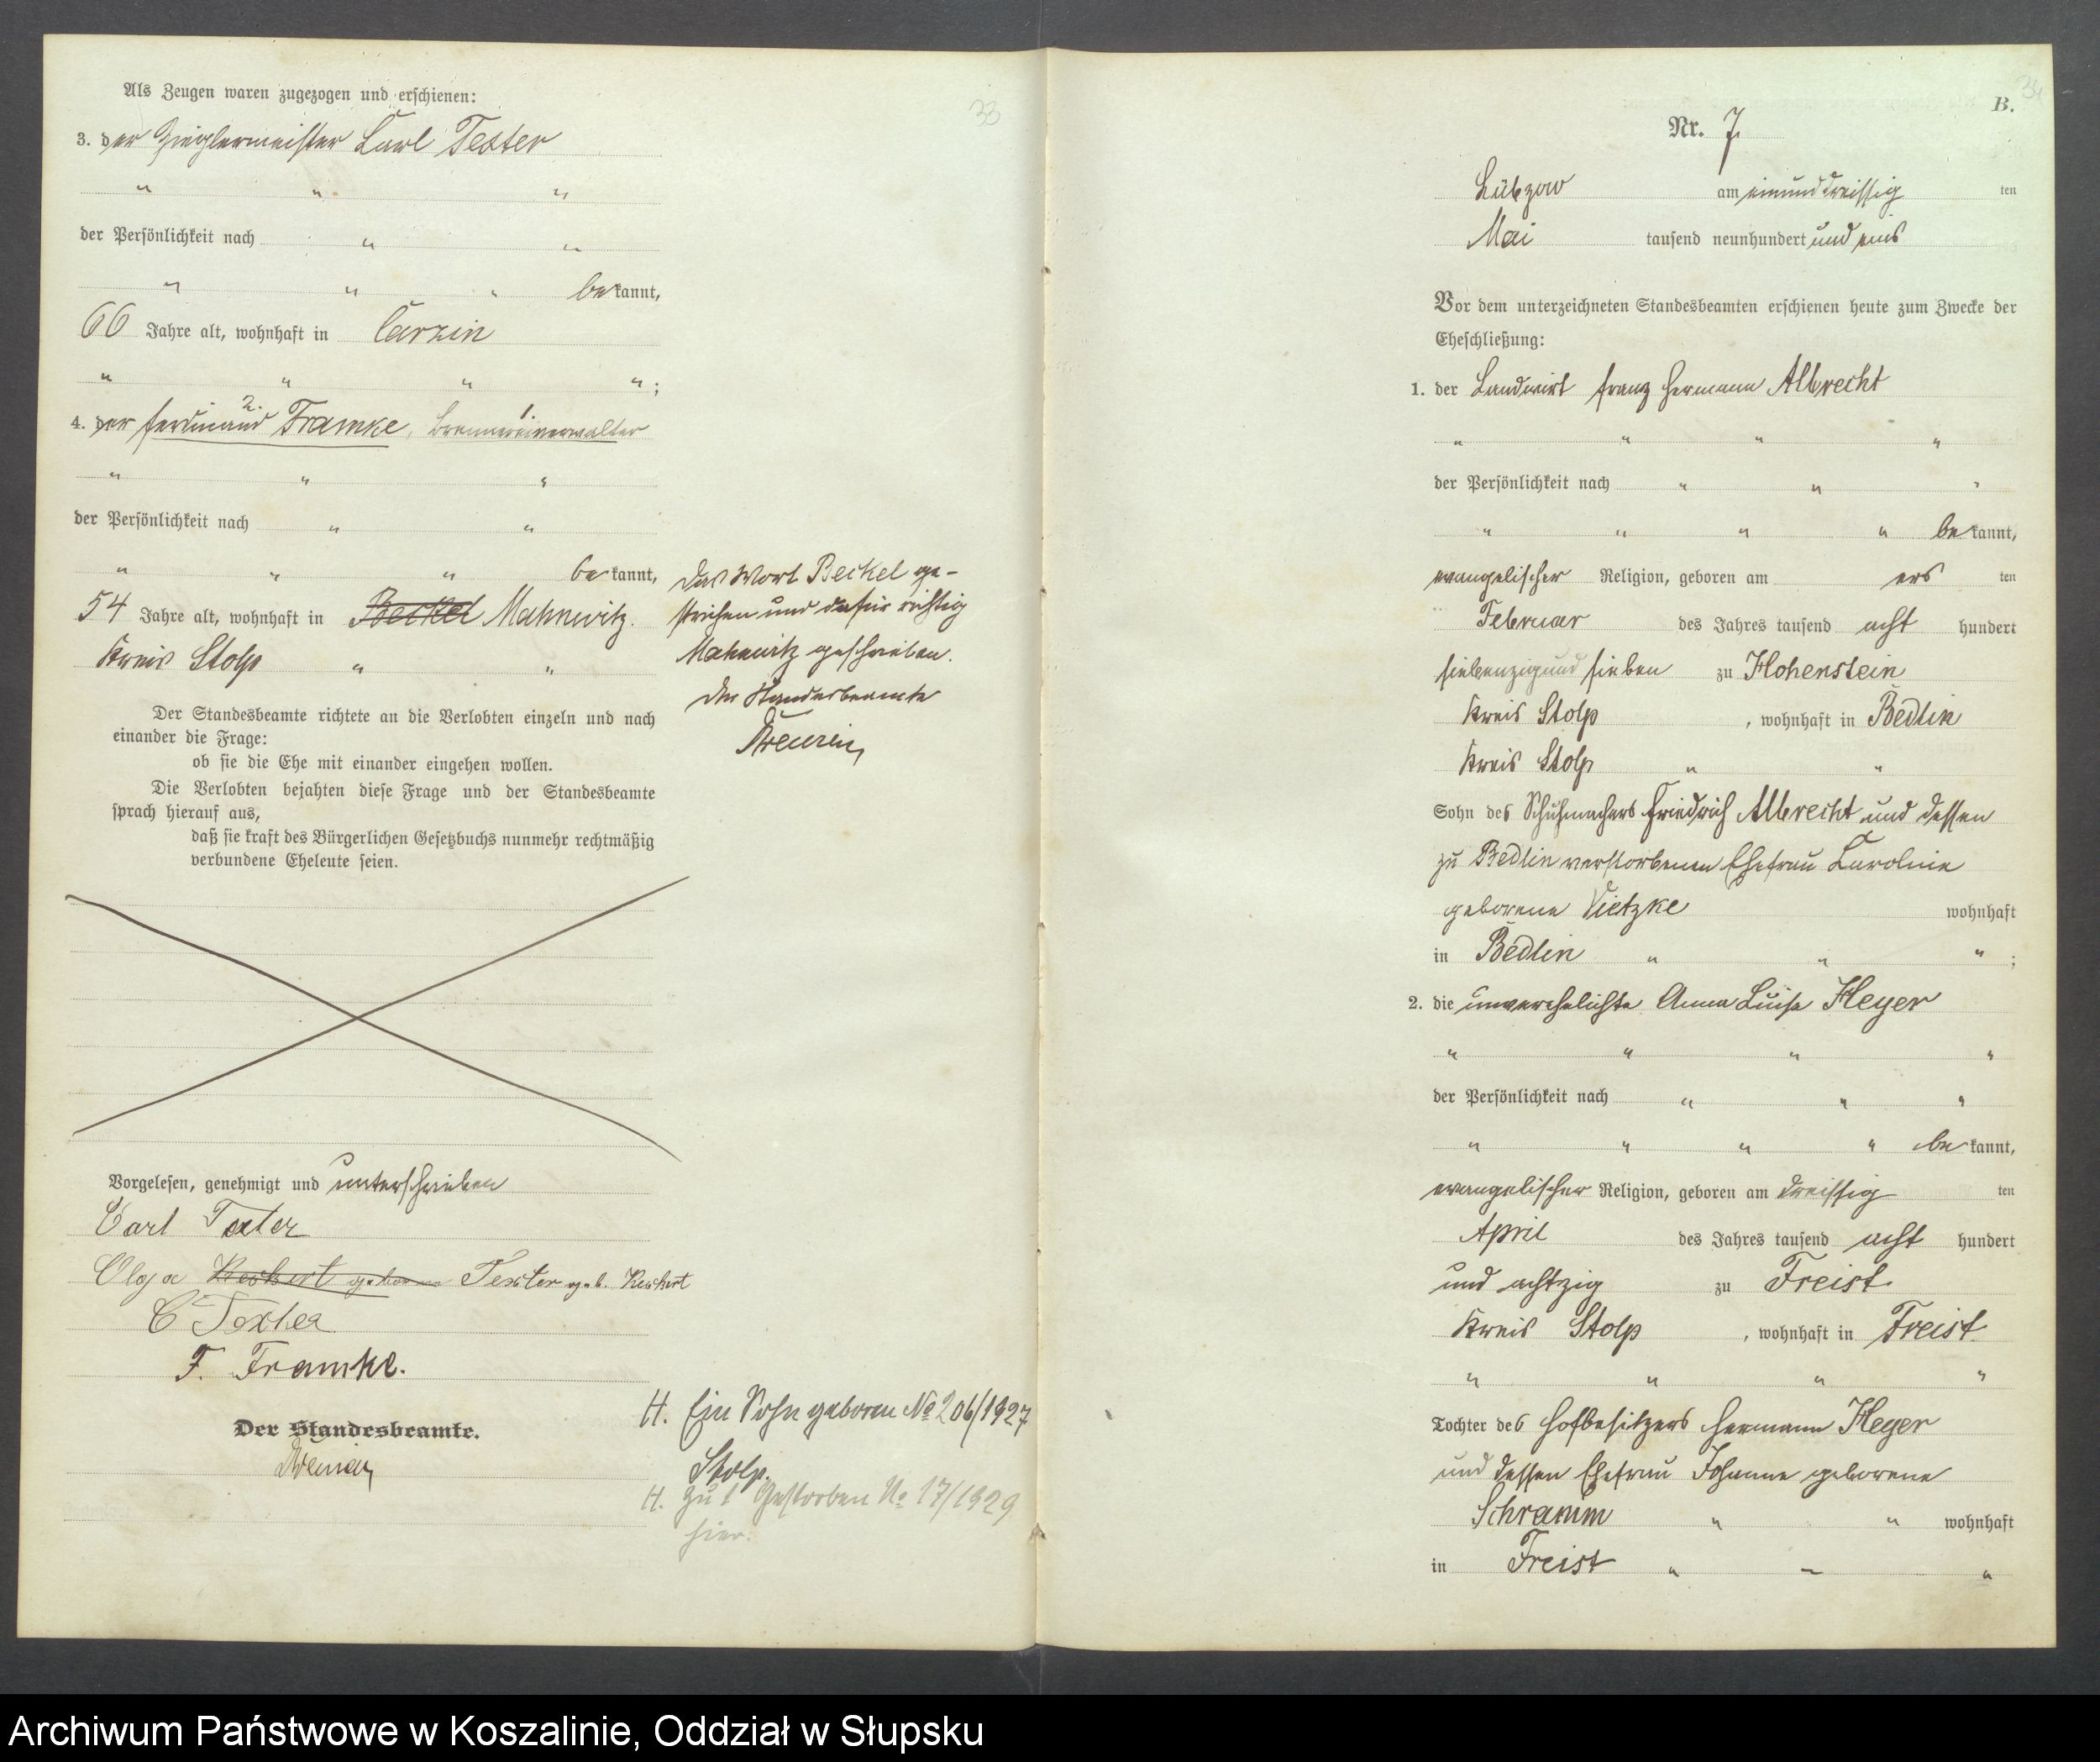 33
Als Zeugen waren zugezogen und erschienen:
3. der Zieglermeister Carl Texter
" " "
der Persönlichkeit nach " "
" " " bekannt,
66 Jahre alt, wohnhaft in Carzin
" " " " ;
4. der Ferdinand 2. Framke, Brennereiverwalter 1.
" " "
der Persönlichkeit nach " "
" " " bekannt,
54 Jahre alt, wohnhaft in Beckel Mahnwitz.
Kreis Stolp " "
Das Wort Beckel ge-
strichen und dafür richtig
Mahnwitz geschrieben.
Der Standesbeamte
Der Standesbeamte richtete an die Verlobten einzeln und nach
einander die Frage:
ob sie die Ehe mit einander eingehen wollen.
Die Verlobten bejahten diese Frage und der Standesbeamte
sprach hierauf aus,
daß sie kraft des Bürgerlichen Gesetzbuchs nunmehr rechtmäßig
verbundene Eheleute seien.
Vorgelesen, genehmigt und unterschrieben
Carl Texter
Olga Texter geb.
C Texter
F. Framke.
Der Standesbeamte.
H. Ein Sohn geboren No 206/1927
Stolp.
H. zu 1 Gestorben No 17/1929
hier.
34
B.
Nr. 7.
Lübzow am einunddreissig ten
Mai tausend neunhundert und eins
Vor dem unterzeichneten Standesbeamten erschienen heute zum Zwecke der
Eheschließung:
1. der Landwirt Franz Hermann Albrecht
" " " "
der Persönlichkeit nach " " "
" " " " bekannt,
evangelischer Religion, geboren am ers ten
Februar des Jahres tausend acht hundert
siebenzig und sieben zu Hohenstein
Kreis Stolp , wohnhaft in Bedlin
Kreis Stolp " "
Sohn des Schuhmachers Friedrich Albrecht und dessen
zu Bedlin verstorbenen Ehefrau Caroline
geborene Vietzke wohnhaft
in Bedlin " " " ;
2. die unverehelichte Anna Luise Heyer
" " " "
der Persönlichkeit nach " " "
" " " " bekannt,
evangelischer Religion, geboren am dreissig ten
April des Jahres tausend acht hundert
und achtzig zu Freist
Kreis Stolp , wohnhaft in Freist
" " " "
Tochter des Hofbesitzers Hermann Heyer
und dessen Ehefrau Johanne geborene
Schramm " " wohnhaft
in Freist " – "
Archiwum Państwowe w Koszalinie, Oddział w Słupsku